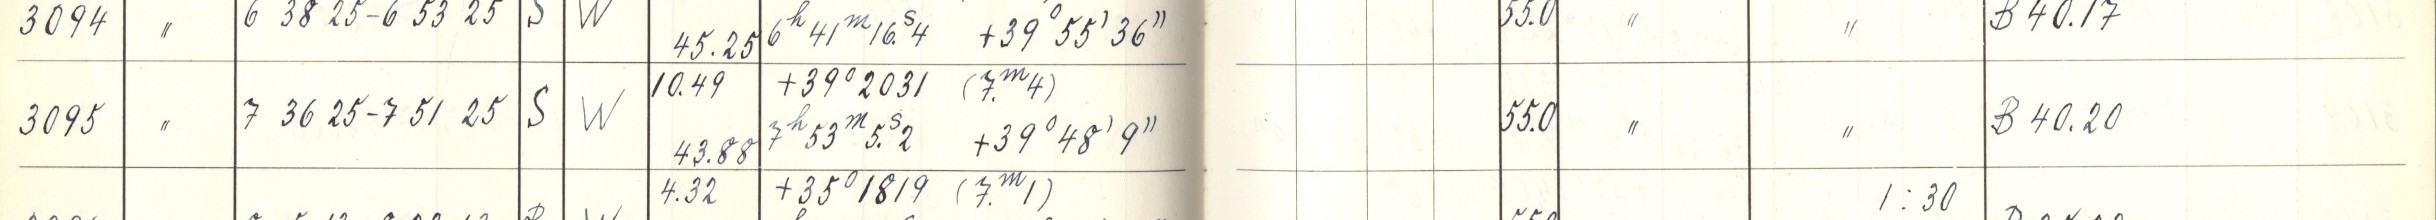 3094 〃 6 38 25-6 53 25 S W 45.25 6ʰ 41ᵐ 16.ˢ4 +39° 55' 36" 55.0 〃 〃 B 40.17
10.49 +39° 2031 (7.ᵐ4)
3095 〃 7 36 25-7 51 25 S W 43.88 7ʰ 53ᵐ 5.ˢ2 +39° 48' 9" 55.0 〃 〃 B 40.20
4.32 +35° 1819 (7.ᵐ1) 1:30